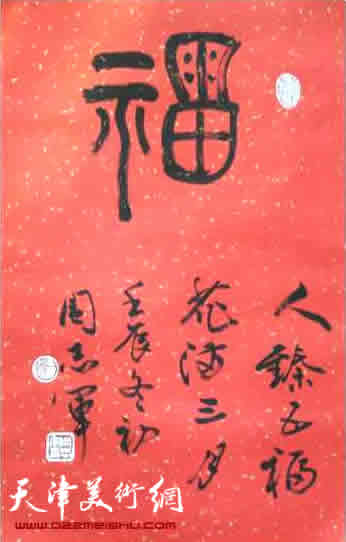 福
人臻五福
花满三月
壬辰冬初
周志军
天津美術網
www.022meishu.com